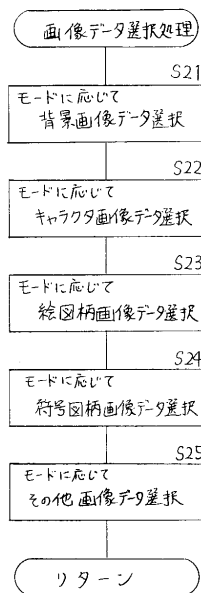 画像データ選択処理
S21
モードに応じて
背景画像データ選択
S22
モードに応じて
キャラクタ画像データ選択
S23
モードに応じて
絵図柄画像データ選択
S24
モードに応じて
符号図柄画像データ選択
S25
モードに応じて
その他画像データ選択
リターン